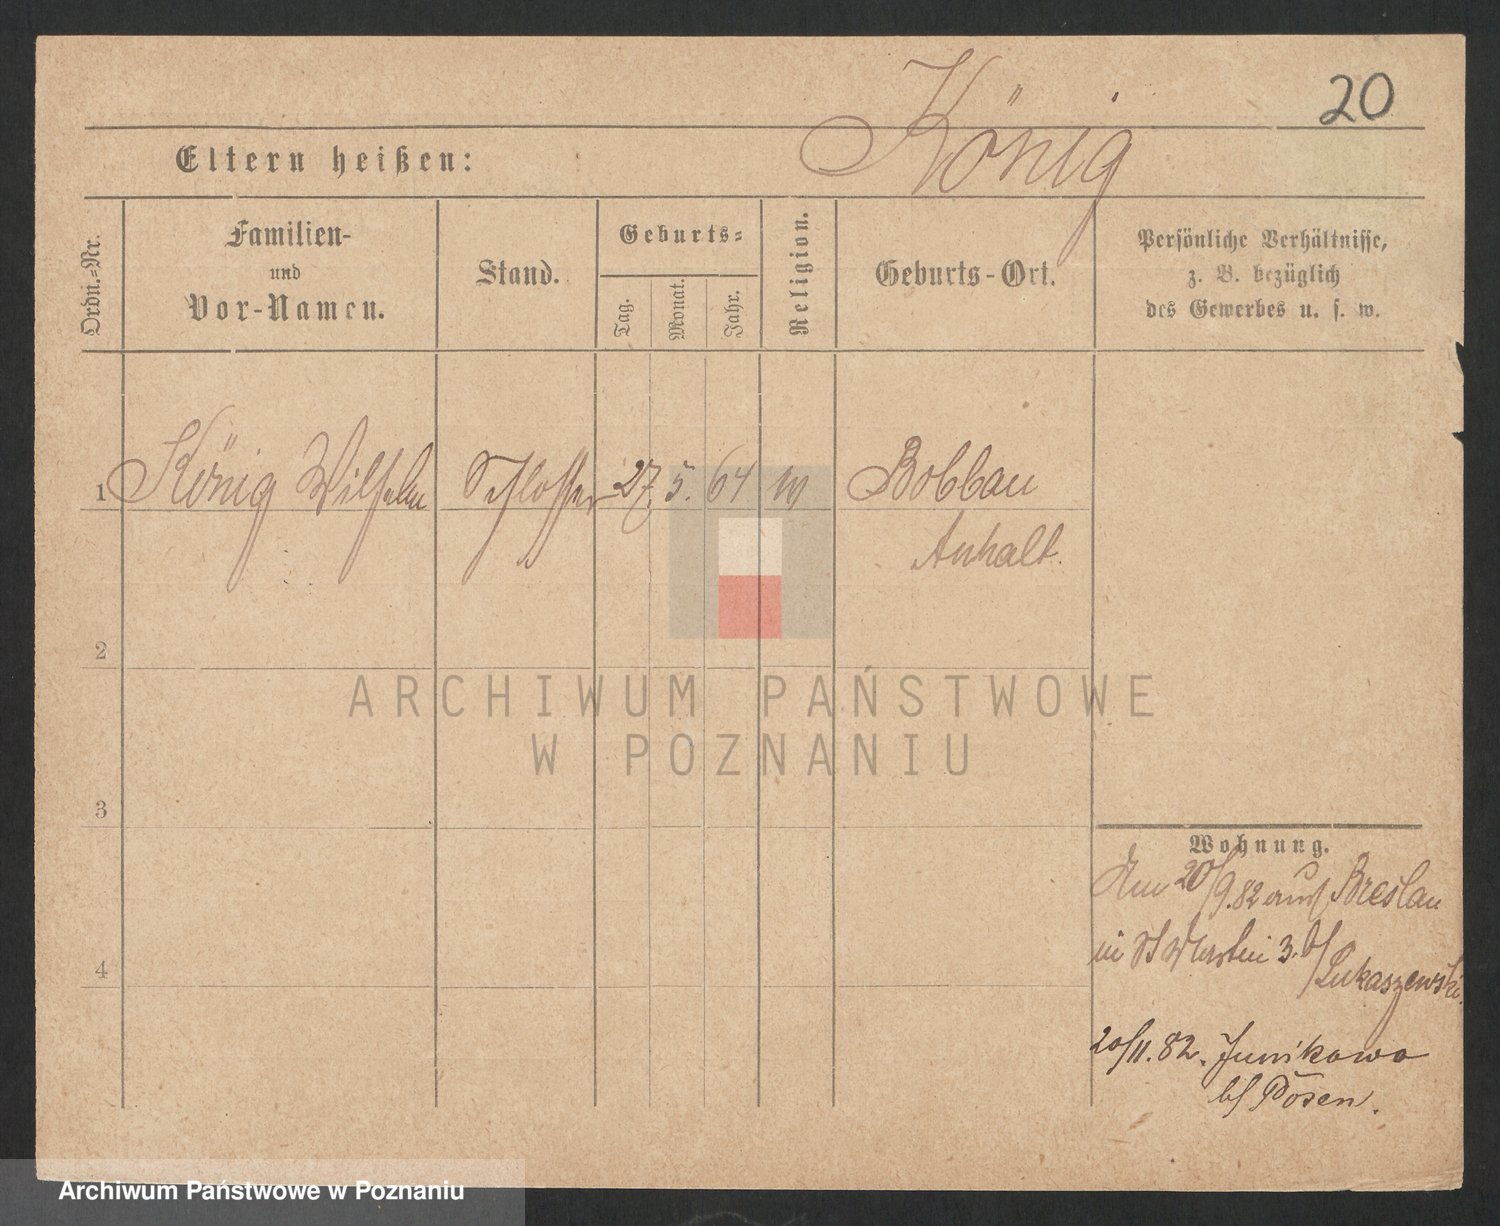 20
König
Eltern heißen:
Ordn.=Nr.
Familien-
und
Vor-Namen.
Stand.
Geburts=
Tag.
Monat.
Jahr.
Religion.
Geburts-Ort.
Persönliche Verhältnisse,
z. B. bezüglich
des Gewerbes u. s. w.
1 König Wilhelm Schlosser 27. 5. 64 Bobbau
Anhalt.
2
ARCHIWUM PAŃSTWOWE
W POZNANIU
3
Wohnung.
20/9.82 Breslau
in St Martin 3. b/
Lukaszewski.
4
20/11.82. Junikowo
b/ Posen.
Archiwum Państwowe w Poznaniu